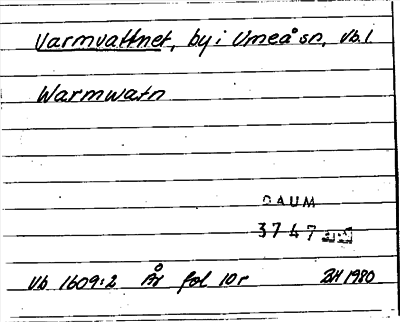 Varmvattnet, by i Umeå sn, Vb. l.
Warmwatn
DAUM
3747
Vb 1609:2 År fol 10r BH 1980